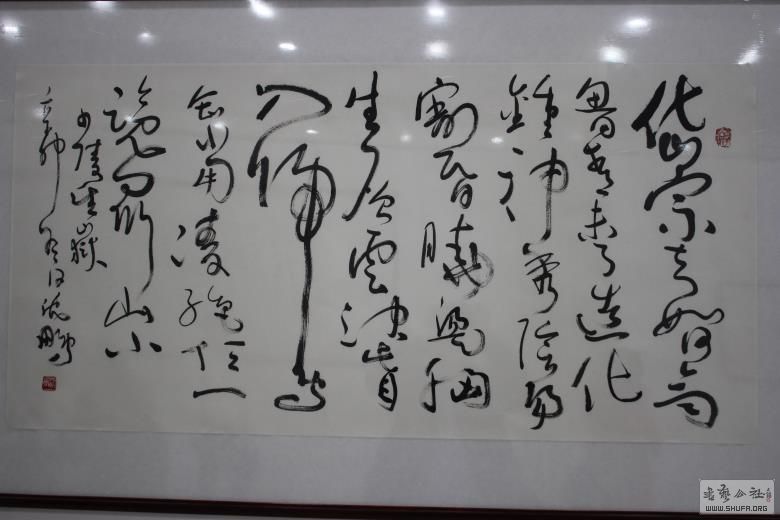 岱宗夫如何齊
魯青未了造化
鍾神秀陰陽
割昏曉盪胸
生層雲決眥
入歸鳥
會當凌絕頂一
覽眾山小
少陵望嶽
沈鵬
書藝公社
WWW.SHUFA.ORG